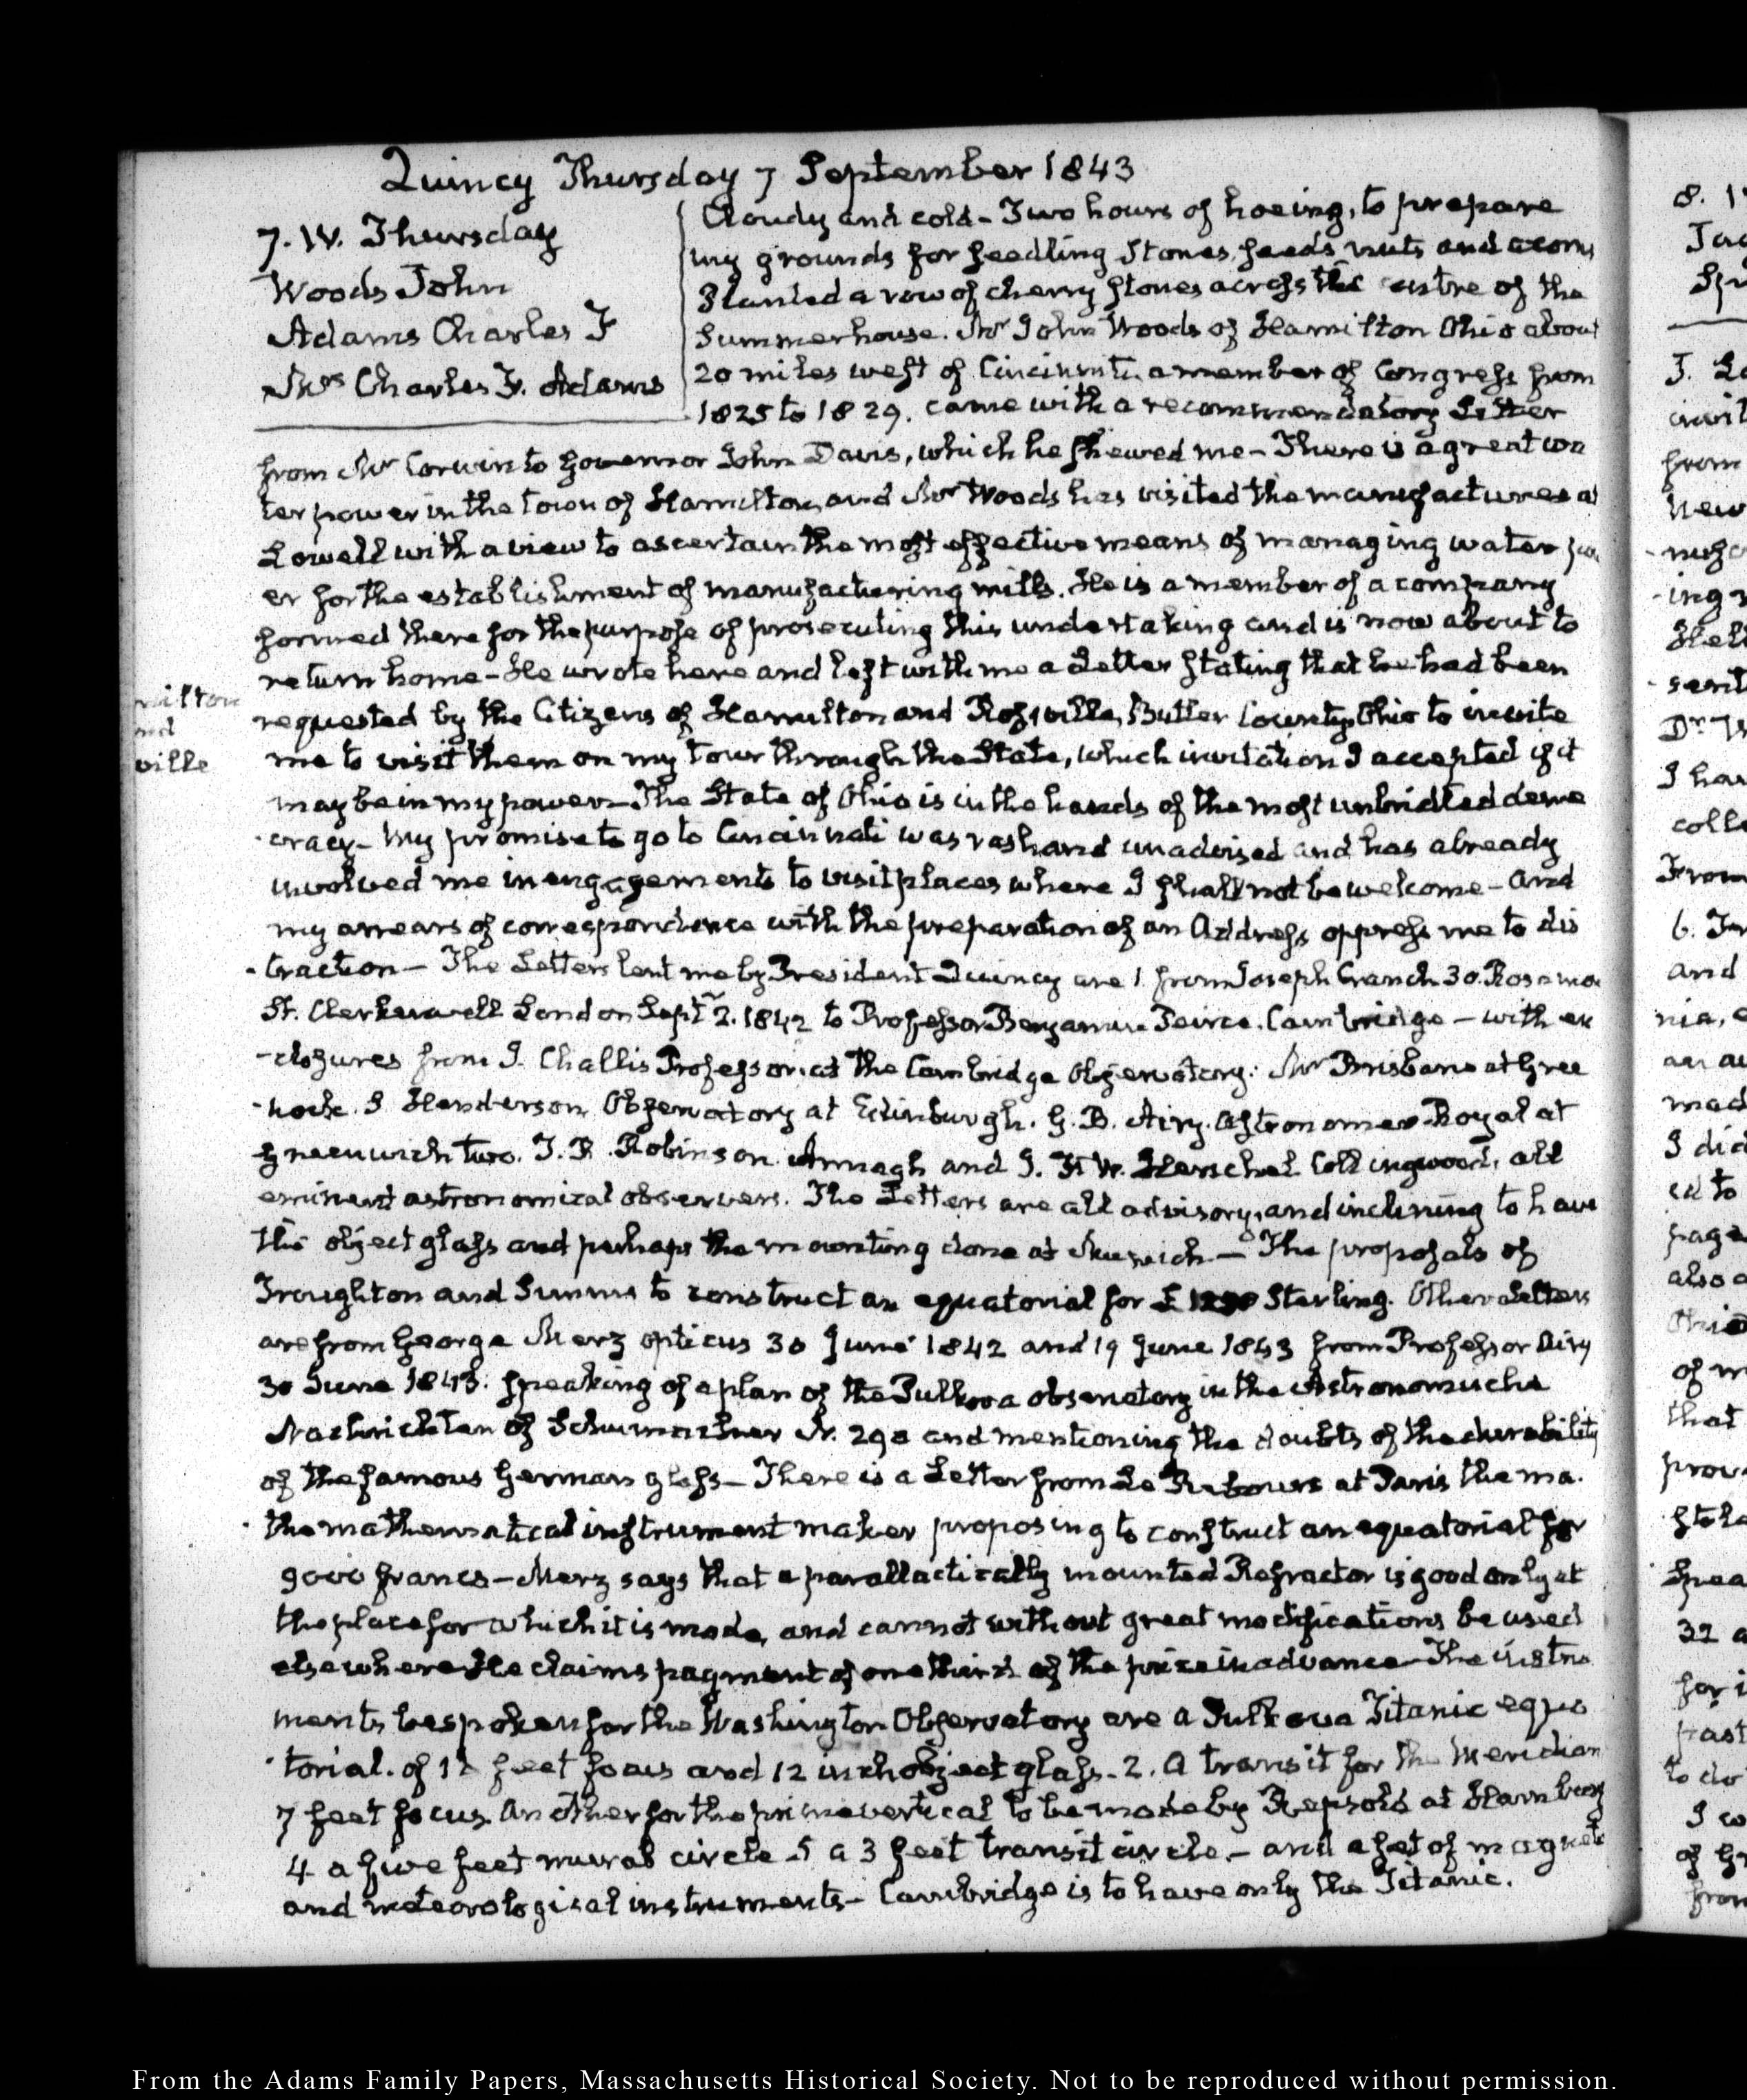 Quincy Thursday 7 September 1843
7. IV. Thursday
Woods John
Adams Charles F
Mrs Charles F. Adams
Cloudy and cold - Two hours of hoeing, to prepare
my grounds for seedling Stones, seeds, nuts and acorns
Planted a row of cherry stones across the centre of the
Summerhouse. Mr John Woods of Hamilton Ohio about
20 miles west of Cincinnati, a member of Congress from
1825 to 1829. came with a recommendatory Letter
from Mr Corwin to Governor John Davis, which he shewed me - There is a great wa
ter power in the town of Hamilton, and Mr Woods has visited the manufactures at
Lowell with a view to ascertain the most effective means of managing water pow
er for the establishment of manufacturing mills. He is a member of a company
formed there for the purpose of prosecuting this undertaking and is now about to
return home - He wrote here and left with me a Letter stating that he had been
milton
nd
ville
requested by the Citizens of Hamilton and Rossville, Butler County, Ohio to invite
me to visit them on my tour through the State, which invitation I accepted if it
may be in my power - The State of Ohio is in the hands of the most unbridled demo
cracy - My promise to go to Cincinnati was rash and unadvised and has already
involved me in engagements to visit places where I shall not be welcome - And
my arrears of correspondence with the preparation of an Address oppress me to dis
-traction - The Letters lent me by President Quincy are 1. from Joseph Cranch 30. Rosamon
St. Clerkenwell London Sept 2. 1842 to Professor Benjamin Peirce. Cambridge - with en
-closures from J. Challis Professor at the Cambridge Observatory. Mr Brisbane at Gree
-nock. J Henderson Observatory at Edinburgh. G. B. Airy. Astronomer Royal at
Greenwich two. T. R. Robinson Armagh and J. F. W. Herschel Collingwood, all
eminent astronomical observers. The Letters are all advisory, and inclining to have
the object glass and perhaps the mounting done at Munich - The proposals of
Troughton and Simms to construct an equatorial for £ Sterling. Other Letters
are from George Merz opticus 30 June 1842 and 19 June 1843 from Professor Airy
30 June 1843. speaking of a plan of the Pulkova observatory in the Astronomische
Nachrichten of Schumacher N. 290 and mentioning the doubts of the durability
of the famous German glass - There is a Letter from Le Rebours at Paris the ma.
the mathematical instrument maker proposing to construct an equatorial for
9000 francs - Merz says that a parallactically mounted Refractor is good only at
the place for which it is made, and cannot without great modifications be used
elsewhere He claims payment of one third of the price in advance - The instru
ments bespoken for the Washington Observatory are a Pulkova Titanic equa
-torial. of feet focus and 12 inch object glass. 2. A transit for the Meridian
7 feet focus. Another for the prime vertical to be made by Repsold at Hamburg
4 a five feet mural circle. 5 a 3 feet transit circle. - and a set of magnet
and meteorological instruments - Cambridge is to have only the Titanic.
From the Adams Family Papers, Massachusetts Historical Society. Not to be reproduced without permission.